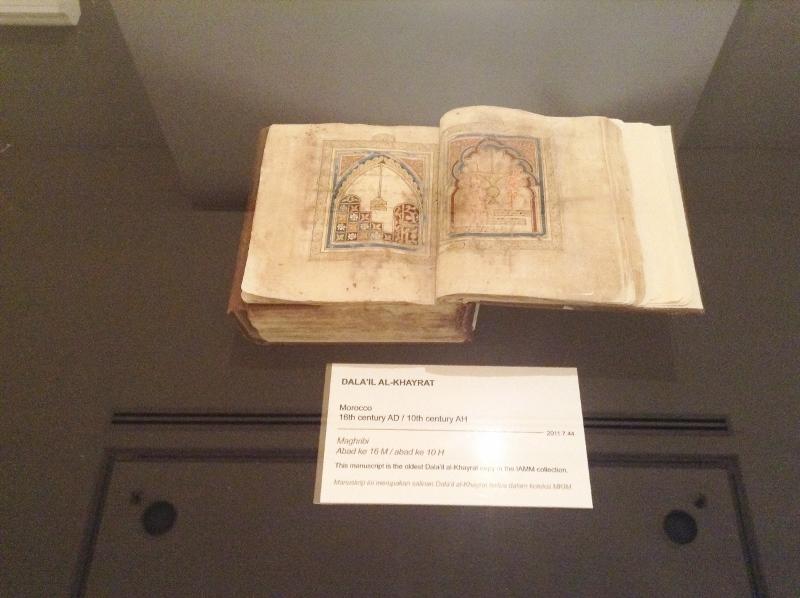 DALA'IL AL-KHAYRAT
Morocco
16th century AD / 10th century AH
2011.7.44
Maghribi
Abad ke 16 M / abad ke 10 H
This manuscript is the oldest Dala'il al-Khayrat copy in the IAMM collection.
Manuskrip ini merupakan salinan Dala'il al-Khayrat tertua dalam koleksi MKIM.